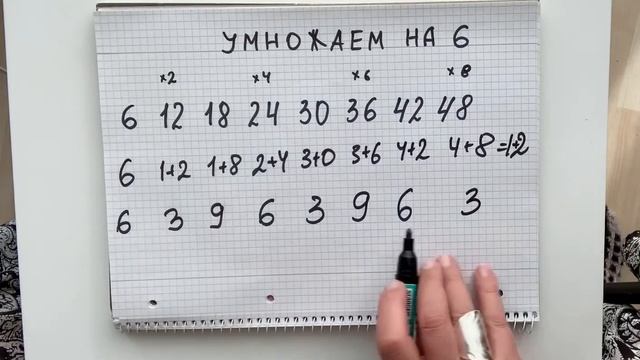 УМНОЖАЕМ НА 6
×2 ×4 ×6 ×8
6 12 18 24 30 36 42 48
6 1+2 1+8 2+4 3+0 3+6 4+2 4+8=1+2
6 3 9 6 3 9 6 3